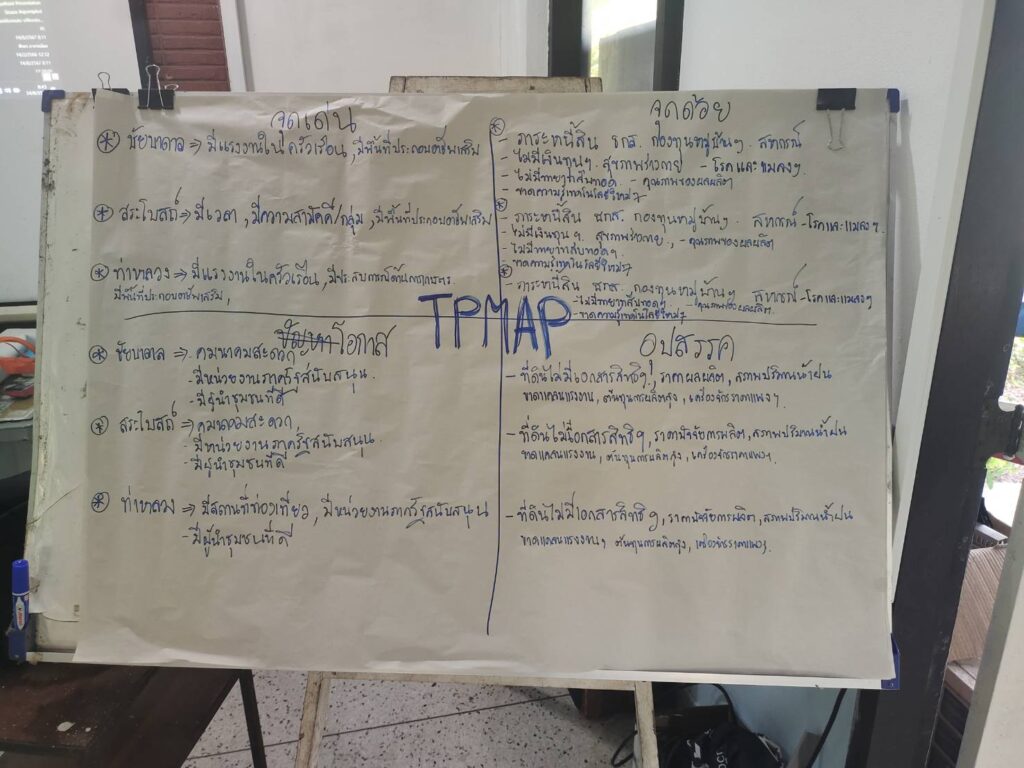 จุดเด่น
* ชัยบาดาล ⇒ มีแรงงานในครัวเรือน, มีพื้นที่ประกอบอาชีพเสริม
* สระโบสถ์ ⇒ มีเวลา, มีความสามัคคี/กลุ่ม, มีพื้นที่ประกอบอาชีพเสริม
* ท่าหลวง ⇒ มีแรงงานในครัวเรือน, มีประสบการณ์ด้านการเกษตร
มีพื้นที่ประกอบอาชีพเสริม,
จุดด้อย
* - ภาระหนี้สิน ธกส. กองทุนหมู่บ้านฯ สหกรณ์
- ไม่มีเงินทุนฯ. สุขภาพร่างกาย - โรคและแมลงฯ
- ไม่มีทายาทสืบทอด - คุณภาพของผลผลิตฯ
- ขาดความรู้เทคโนโลยีใหม่ๆ
* - ภาระหนี้สิน ธกส. กองทุนหมู่บ้านฯ. สหกรณ์ - โรคและแมลงฯ
- ไม่มีเงินทุนฯ. สุขภาพร่างกาย, - คุณภาพของผลผลิต
- ไม่มีทายาทสืบทอดฯ
- ขาดความรู้เทคโนโลยีใหม่ๆ
* - ภาระหนี้สิน ธกส. กองทุนหมู่บ้านฯ สหกรณ์ - โรคและแมลงฯ
- ไม่มีทายาทสืบทอดฯ - คุณภาพของผลผลิต
- ขาดความรู้เทคโนโลยีใหม่ๆ
TPMAP
ปัญหา โอกาส
* ชัยบาดาล ⇒ คมนาคมสะดวก
- มีหน่วยงานภาครัฐสนับสนุน
- มีผู้นำชุมชนที่ดี
* สระโบสถ์ ⇒ คมนาคมสะดวก
- มีหน่วยงานภาครัฐสนับสนุน
- มีผู้นำชุมชนที่ดี
* ท่าหลวง ⇒ มีสถานที่ท่องเที่ยว, มีหน่วยงานภาครัฐสนับสนุน
- มีผู้นำชุมชนที่ดี
อุปสรรค
- ที่ดินไม่มีเอกสารสิทธิฯ, ราคาผลผลิต, สภาพปริมาณน้ำฝน
ขาดแคลนแรงงาน, ต้นทุนการผลิตสูง, เครื่องจักรราคาแพงฯ
- ที่ดินไม่มีเอกสารสิทธิฯ, ราคาปัจจัยการผลิต, สภาพปริมาณน้ำฝน
ขาดแคลนแรงงาน, ต้นทุนการผลิตสูง, เครื่องจักรราคาแพงฯ
- ที่ดินไม่มีเอกสารสิทธิฯ, ราคาปัจจัยการผลิต, สภาพปริมาณน้ำฝน
ขาดแคลนแรงงานฯ ต้นทุนการผลิตสูง, เครื่องจักรราคาแพงฯ